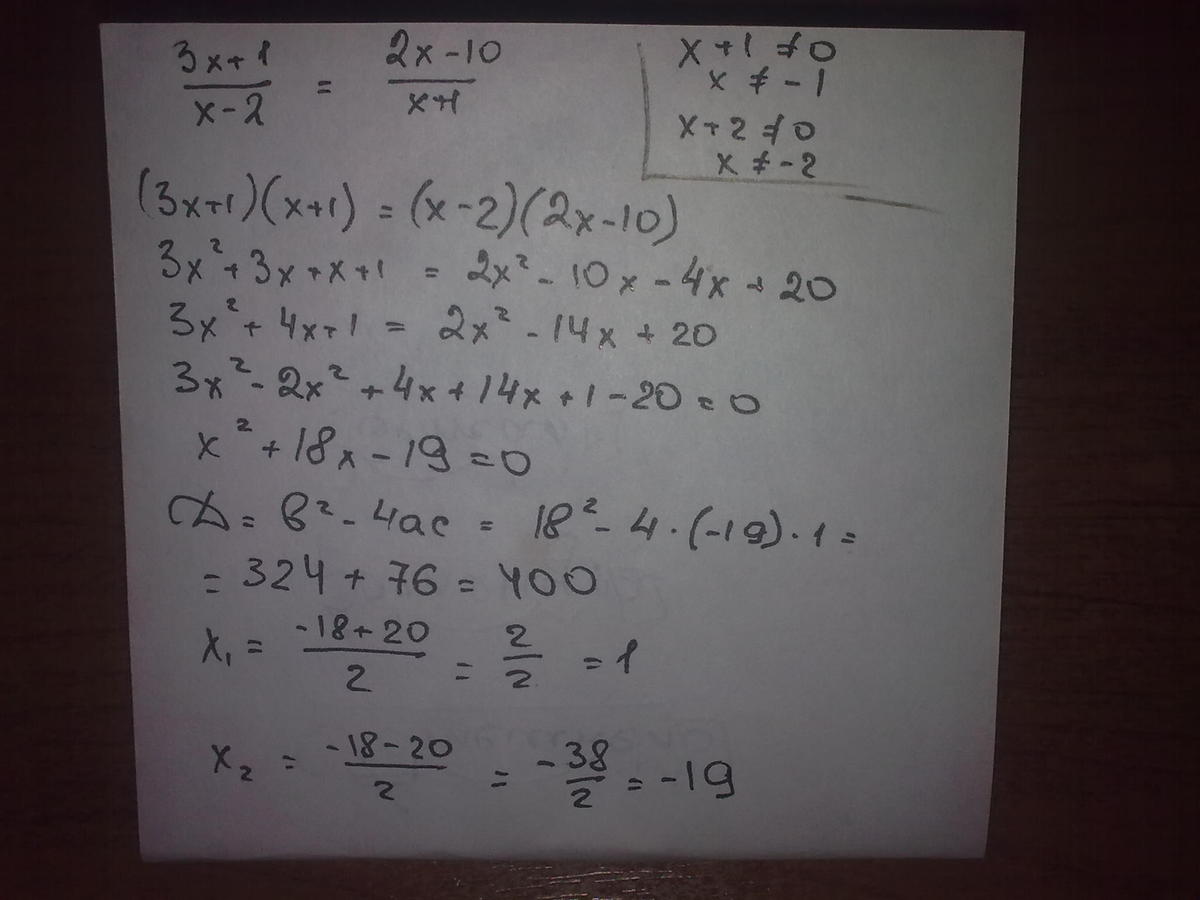 3x+1/x-2 = 2x-10/x+1
x+1≠0
x≠-1
x+2≠0
x≠-2
(3x+1)(x+1) = (x-2)(2x-10)
3x²+3x+x+1 = 2x²-10x-4x+20
3x²+4x+1 = 2x²-14x+20
3x²-2x²+4x+14x+1-20=0
x²+18x-19=0
D=b²-4ac = 18²-4·(-19)·1=
=324+76=400
x₁= -18+20/2 = 2/2 =1
x₂ = -18-20/2 = -38/2 = -19